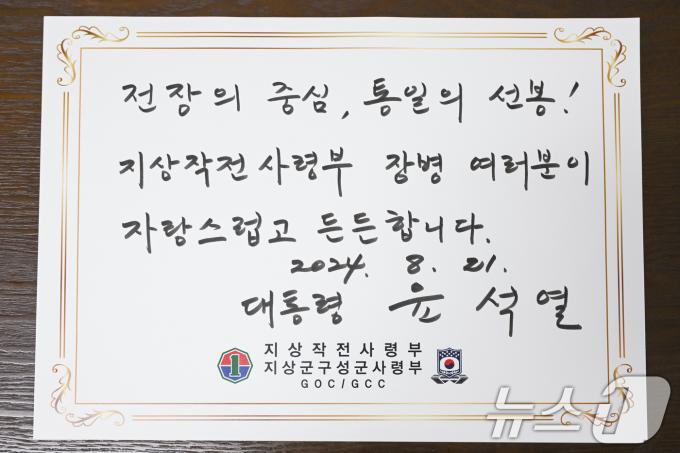 전장의 중심, 통일의 선봉!
지상작전사령부 장병 여러분이
자랑스럽고 든든합니다.
2024. 8. 21.
대통령 윤석열
지상작전사령부
지상군구성군사령부
GOC/GCC
1
뉴스1